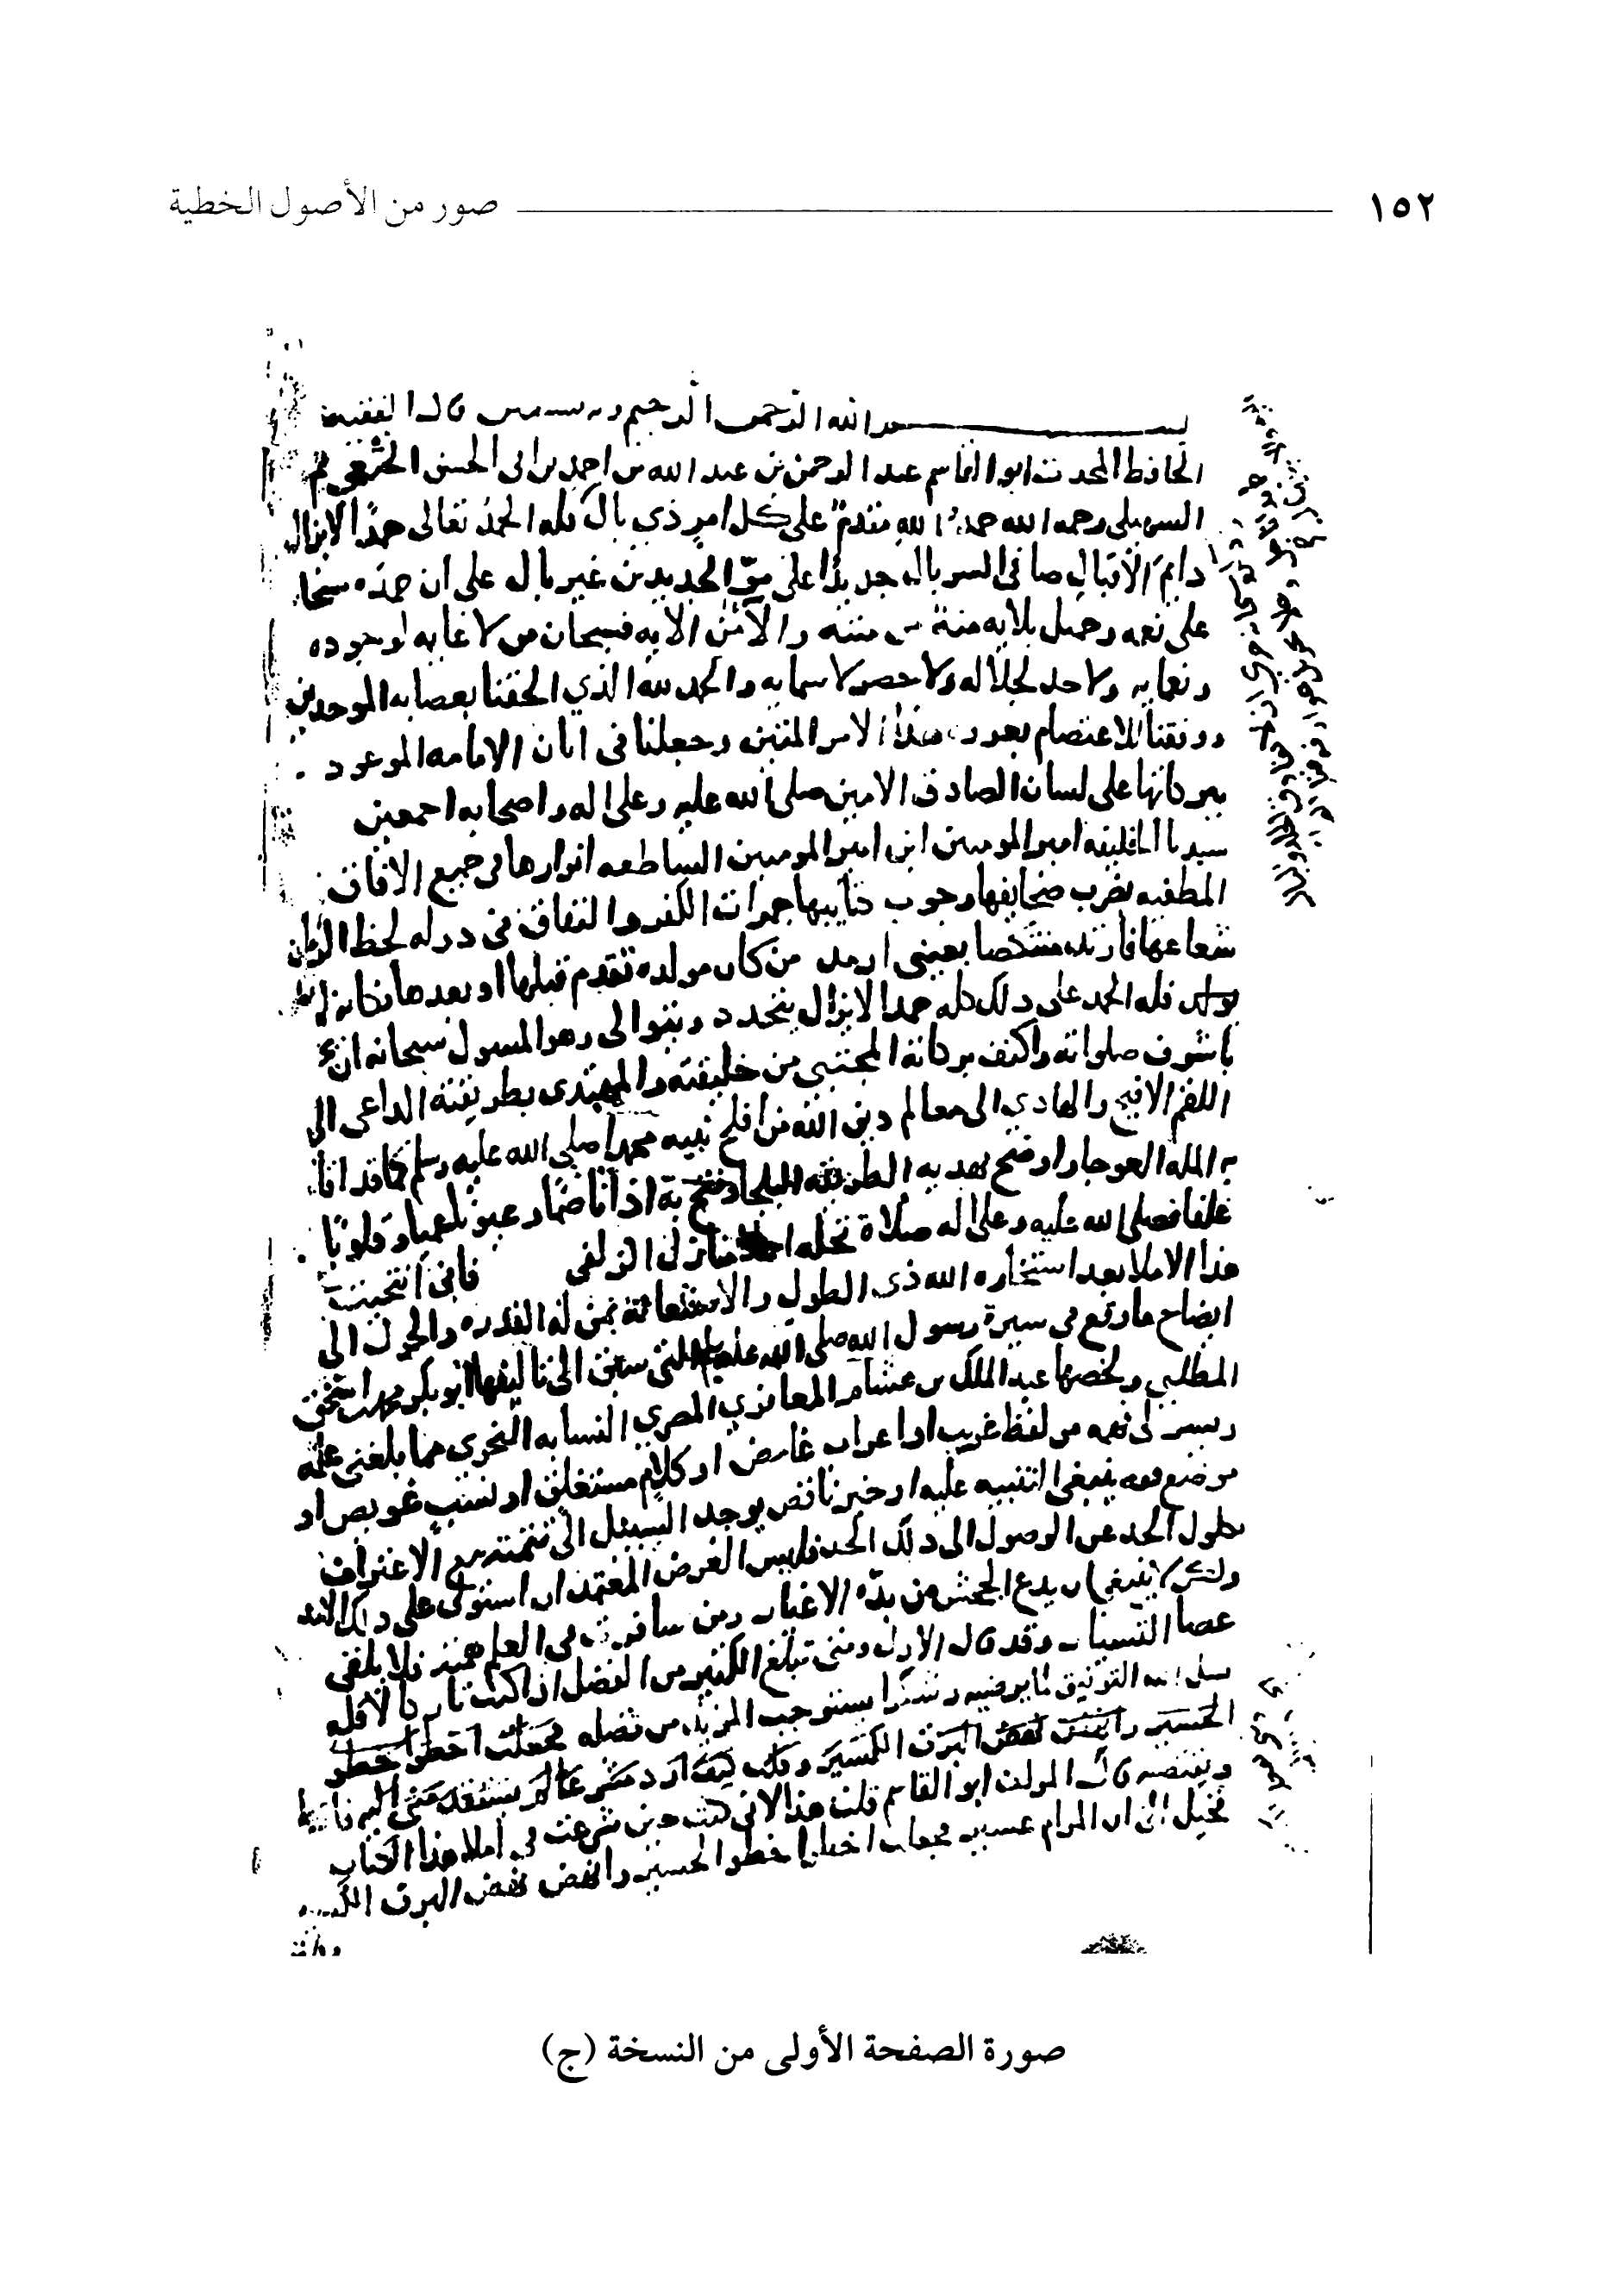 ١٥٢ صور من الأصول الخطية
بسم الله الرحمن الرحيم قال الفقيه
الحافظ المحدث ابو القاسم عبد الرحمن بن عبد الله بن احمد بن ابى الحسن الخثعمي ثم
السهيلى رحمه الله حمد الله مقدم على كل امر ذي بال فله الحمد تعالى حمدا لا يزال
دايم الاقبال ضافى السربال جديدا على مر الجديدين غير بال على ان حمده سبحانه
على نعمه وجميل بلايه منة من مننه والآء من الايه فسبحان من لا غاية لجوده
ونعمايه ولا حد لجلاله ولا حصر لاسمايه والحمد لله الذي الحقنا بعصابة الموحدين
ووفقنا للاعتصام بعروة هذا الامر المتين وجعلنا فى ابان الامامة الموعود
ببركاتها على لسان الصادق الامين صلى الله عليه وعلى اله واصحابه اجمعين
سيدنا الخليفه امير المومنين ابن امير المومنين الساطعه انوارها فى جميع الافاق
المطفيه بضرب صحايفها وجوب كتايبها جمرات الكفر والنفاق فى دوله لحظ الزمان
شعاعها فارتد منتكصا بعيني ارمد من كان مولده تقدم قبلها او بعدها فكانه لم
يولد فله الحمد على ذلك كله حمدا لا يزال يتجدد ويتوالى وهو المسول سبحانه ان
باشرف صلواته واكنف بركاته المجتبى من خليقته والمهتدى بطريقته الداعى الى
اللقم الافيح والهادي الى معالم دين الله من افلح نبيه محمدا صلى الله عليه وسلم كما قد اقام
به الملة العوجاء واوضح بهديه الطريقة البلجاء وفتح به اذانا صما وعيونا عميا وقلوبا
غلفا فصلى الله عليه وعلى اله صلاة تحله اعلا منازل الزلفى فانى انتحيت
هذا الاملا بعد استخاره الله ذى الطول والاستعانة بمن له القدره والحول الى
ايضاح ما وقع فى سيرة رسول الله صلى الله عليه وسلم التى سبق الى تاليفها ابو بكر محمد بن اسحق
المطلبي ولخصها عبد الملك بن هشام المعافري المصري النسابه النحوى مما بلغنى علمه
ويسر لى فهمه من لفظ غريب او اعراب غامض او كلام مستغلق او نسب عويص او
موضع فقه ينبغى التنبيه عليه او خبر ناقص يوجد السبيل الى تتمته مع الاعتراف
بكلول الحد عن الوصول الى ذلك الحد فليس الغرض المعتمد ان استولى على ذلك الامد
ولكن لا ينبغى ان يدع الجحش من بذه الاعيار ومن سافرت فى العلم همته فلا يلقى
عصا التسيار وقد قال الاول ومتى تبلغ الكثير من الفضل اذا كنت تاركا لاقله
نسل الله التوفيق لما يرضيه وشكرا يستوجب المزيد من فضله
ويقتضيه قال المولف ابو القاسم قلت هذا لانى كنت حين شرعت فى املا هذا الكتاب
تخيل الى ان المرام عسير فجعلت اخطوا خطو الحسير وانهض نهض البرق الكسير
صورة الصفحة الأولى من النسخة (ج)